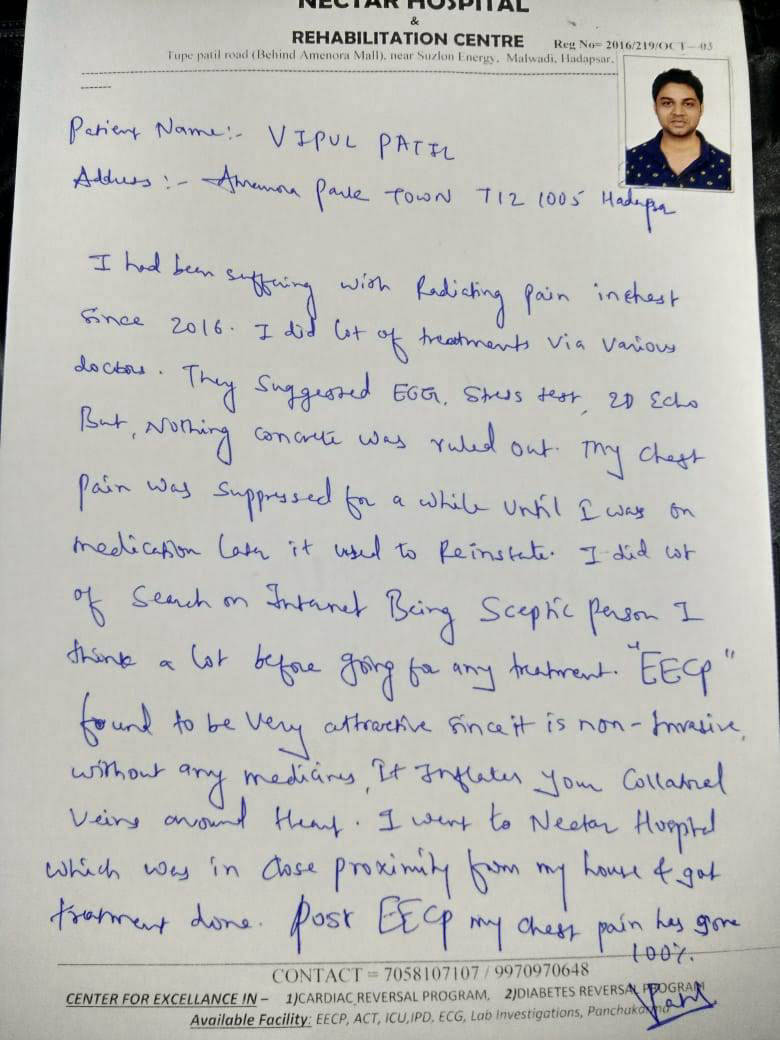 NECTAR HOSPITAL
&
REHABILITATION CENTRE Reg No= 2016/219/OCT-03
Tupe patil road (Behind Amenora Mall), near Suzlon Energy, Malwadi, Hadapsar,
Patient Name:- VIPUL PATIL
Address:- Amenora Park TOWN T12 1005 Hadapsar
I had been suffering with Radiating Pain inchest
since 2016. I did lot of treatments via various
doctors. They suggested ECG, Stress test, 2D Echo
But, Nothing concrete was ruled out. My chest
Pain was suppressed for a while until I was on
medication later it used to Reinstate. I did lot
of search on Internet Being Sceptic person I
think a lot before going for any treatment. "EECP"
found to be very attractive since it is non-Invasive,
without any medicines, It Inflates your Collateral
Veins around Heart. I went to Nectar Hospital
which was in close proximity from my house & got
treatment done. Post EECP my chest pain has gone
100%.
CONTACT = 7058107107 / 9970970648
CENTER FOR EXCELLENCE IN – 1)CARDIAC REVERSAL PROGRAM, 2)DIABETES REVERSAL PROGRAM
Available Facility: EECP, ACT, ICU,IPD, ECG, Lab Investigations, Panchakarma